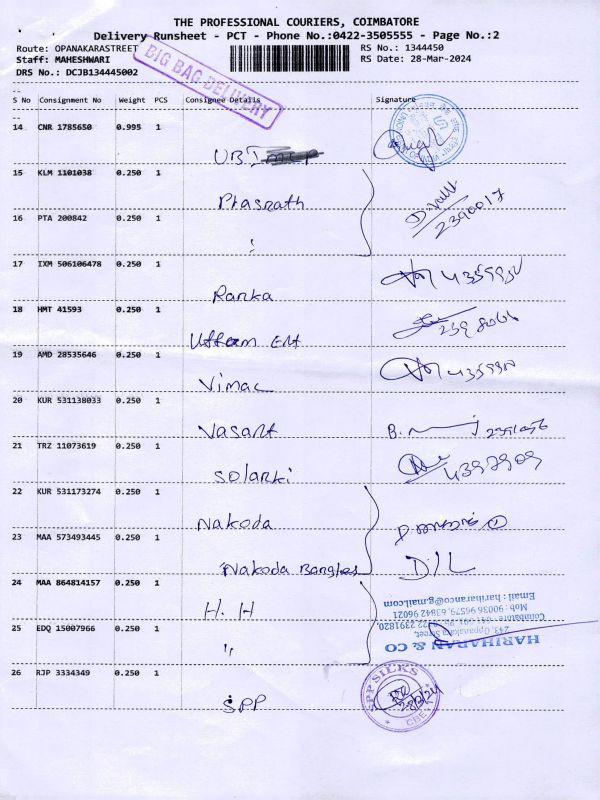 THE PROFESSIONAL COURIERS, COIMBATORE
Delivery Runsheet - PCT - Phone No.:0422-3505555 - Page No.:2
Route: OPANAKARASTREET RS No.: 1344450
Staff: MAHESHWARI RS Date: 28-Mar-2024
DRS No.: DCJB134445002
BIG BAG DELIVERY
S No Consignment No Weight PCS Consignee Details Signature
14 CNR 1785650 0.995 1
UBI
15 KLM 1101038 0.250 1
Ptasrath
2390017
16 PTA 200842 0.250 1
17 IXM 506106478 0.250 1
Ranka
18 HMT 41593 0.250 1
Uttam Ent
19 AMD 28535646 0.250 1
Vimac
20 KUR 531138033 0.250 1
Vasant
21 TRZ 11073619 0.250 1
Solanki
22 KUR 531173274 0.250 1
Nakoda
23 MAA 573493445 0.250 1
Nakoda Bangles D/L
24 MAA 864814157 0.250 1
H. H
HARIHARAN & CO
243, Oppanakara Street,
Mob : 90036 96579, 63842 96021
Email : hariharanco@gmail.com
25 EDQ 15007966 0.250 1
"
26 RJP 3334349 0.250 1
SPP
SPP SILKS
28/3/24
CBE